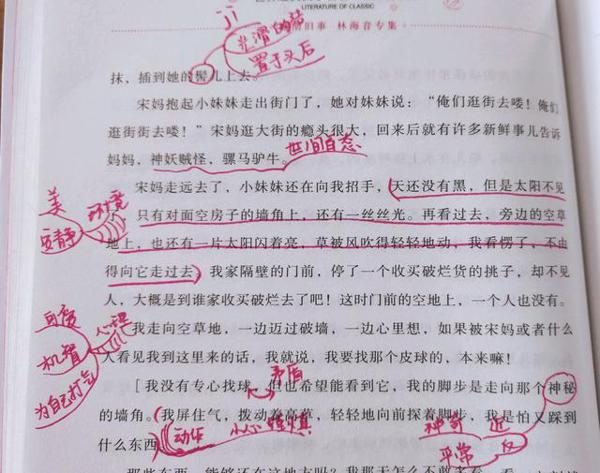 LITERATURE OF CLASSIC
旧事 林海音专集
jì
光滑的
置于头后
抹，插到她的髻儿上去。
宋妈抱起小妹妹走出街门了，她对妹妹说：“俺们逛街去喽！俺们
逛街街去喽！”宋妈逛大街的瘾头很大，回来后就有许多新鲜事儿告诉
妈妈，神妖贼怪，骡马驴牛。 世间百态
宋妈走远去了，小妹妹还在向我招手，天还没有黑，但是太阳不见
美 环境
只有对面空房子的墙角上，还有一丝丝光。再看过去，旁边的空草
安静
地上，也还有一片太阳闪着亮，草被风吹得轻轻地动，我看愣了，不由
得向它走过去。我家隔壁的门前，停了一个收买破烂货的挑子，却不见
人，大概是到谁家收买破烂去了吧！这时门前的空地上，一个人也没有。
心理
我走向空草地，一边迈过破墙，一边心里想，如果被宋妈或者什么
机智
人看见我到这里来的话，我就说，我要找那个皮球的，本来嘛！
为自己打气 矛盾
我没有专心找球，但也希望能看到它，我的脚步是走向那个神秘
的墙角。我屏住气，拨动着高草，轻轻地向前探着脚步，我是怕又踩到
什么东西 动作 小心 谨慎 神奇 近
平常 反